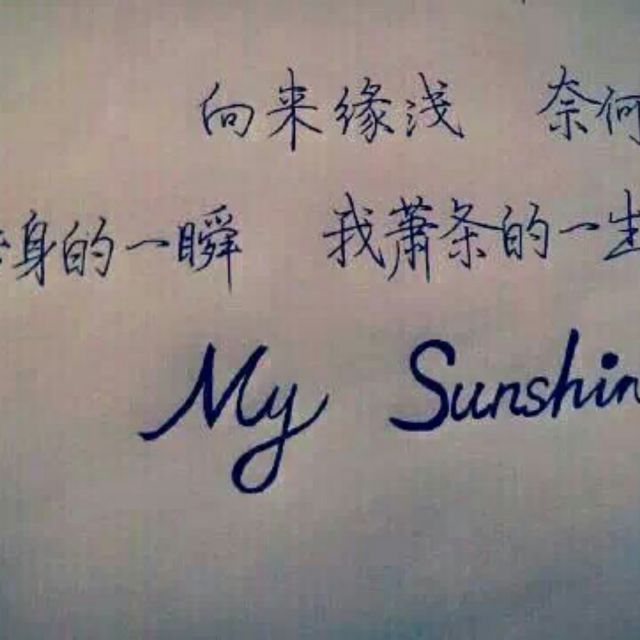 向来缘浅 奈何
身的一瞬 我萧条的一生
My Sunshin